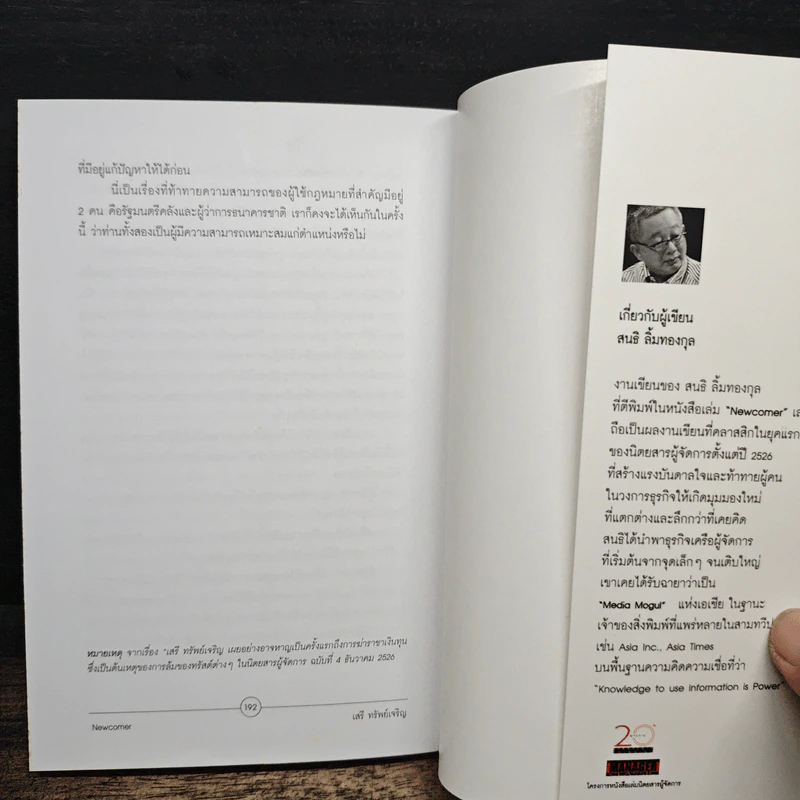 ที่มีอยู่แก้ปัญหาให้ได้ก่อน
นี่เป็นเรื่องที่ท้าทายความสามารถของผู้ใช้กฎหมายที่สำคัญมีอยู่
2 คน คือรัฐมนตรีคลังและผู้ว่าการธนาคารชาติ เราก็คงจะได้เห็นกันในครั้ง
นี้ ว่าท่านทั้งสองเป็นผู้มีความสามารถเหมาะสมแก่ตำแหน่งหรือไม่
หมายเหตุ จากเรื่อง "เสรี ทรัพย์เจริญ เผยอย่างอาจหาญเป็นครั้งแรกถึงการฆ่าราชาเงินทุน
ซึ่งเป็นต้นเหตุของการล้มของทรัสต์ต่างๆ ในนิตยสารผู้จัดการ ฉบับที่ 4 ธันวาคม 2526
192
Newcomer
เสรี ทรัพย์เจริญ
เกี่ยวกับผู้เขียน
สนธิ ลิ้มทองกุล
งานเขียนของ สนธิ ลิ้มทองกุล
ที่ตีพิมพ์ในหนังสือเล่ม "Newcomer"
ถือเป็นผลงานเขียนที่คลาสสิกในยุคแรก
ของนิตยสารผู้จัดการตั้งแต่ปี 2526
ที่สร้างแรงบันดาลใจและท้าทายผู้คน
ในวงการธุรกิจให้เกิดมุมมองใหม่
ที่แตกต่างและลึกกว่าที่เคยคิด
สนธิได้นำพาธุรกิจเครือผู้จัดการ
ที่เริ่มต้นจากจุดเล็กๆ จนเติบใหญ่
เขาเคยได้รับฉายาว่าเป็น
"Media Mogul" แห่งเอเชีย ในฐานะ
เจ้าของสิ่งพิมพ์ที่แพร่หลายในสามทวีป
เช่น Asia Inc., Asia Times
บนพื้นฐานความคิดความเชื่อที่ว่า
"Knowledge to use information is Power"
20
โครงการหนังสือเล่มนิตยสารผู้จัดการ